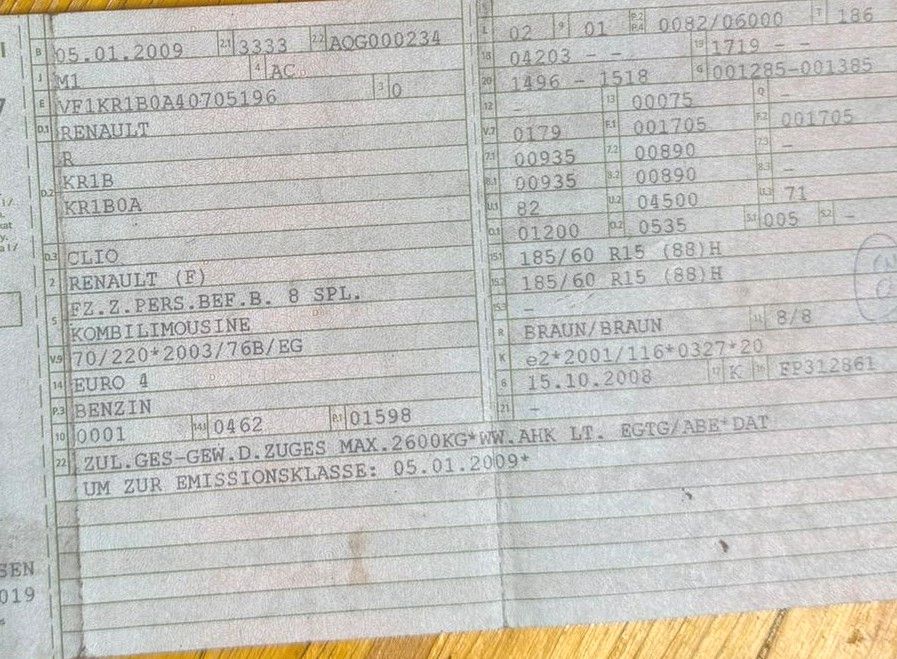 B 05.01.2009 2.1 3333 2.2 AOG000234
J M1 4 AC
E VF1KR1B0A40705196 3 0
D.1 RENAULT
R
D.2 KR1B
KR1B0A
D.3 CLIO
2 RENAULT (F)
5 FZ.Z.PERS.BEF.B. 8 SPL.
KOMBILIMOUSINE
V.9 70/220*2003/76B/EG
14 EURO 4
P.3 BENZIN
10 0001 14.1 0462 P.1 01598
22 ZUL.GES-GEW.D.ZUGES MAX.2600KG*WW.AHK LT. EGTG/ABE*DAT
UM ZUR EMISSIONSKLASSE: 05.01.2009*
L 02 9 01 P.2 P.4 0082/06000 T 186
18 04203 - - 19 1719 - -
20 1496 - 1518 G 001285-001385
12 - 13 00075 Q -
V.7 0179 F.1 001705 F.2 001705
7.1 00935 7.2 00890 7.3 -
8.1 00935 8.2 00890 8.3 -
U.1 82 U.2 04500 U.3 71
O.1 01200 O.2 0535 S.1 005 S.2 -
15.1 185/60 R15 (88)H
15.2 185/60 R15 (88)H
15.3 -
R BRAUN/BRAUN 11 8/8
K e2*2001/116*0327*20
6 15.10.2008 17 K 16 FP312861
21 -
SEN
019